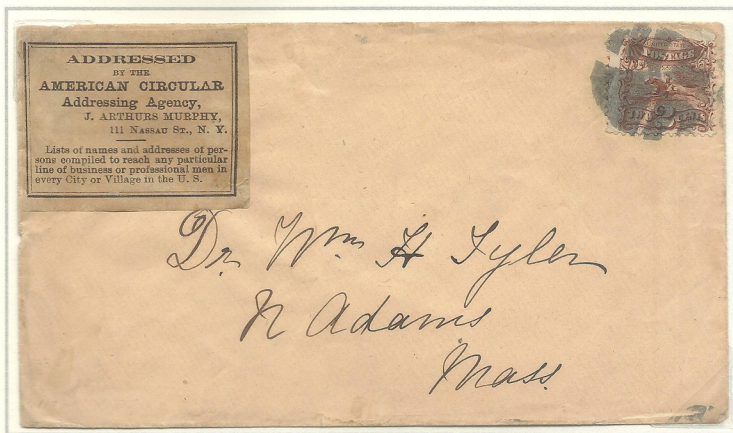 ADDRESSED
BY THE
AMERICAN CIRCULAR
Addressing Agency,
J. ARTHURS MURPHY,
111 NASSAU ST., N. Y.
Lists of names and addresses of per-
sons compiled to reach any particular
line of business or professional men in
every City or Village in the U. S.
POSTAGE
2
Dr. Wm H Tyler
N Adams
Mass.